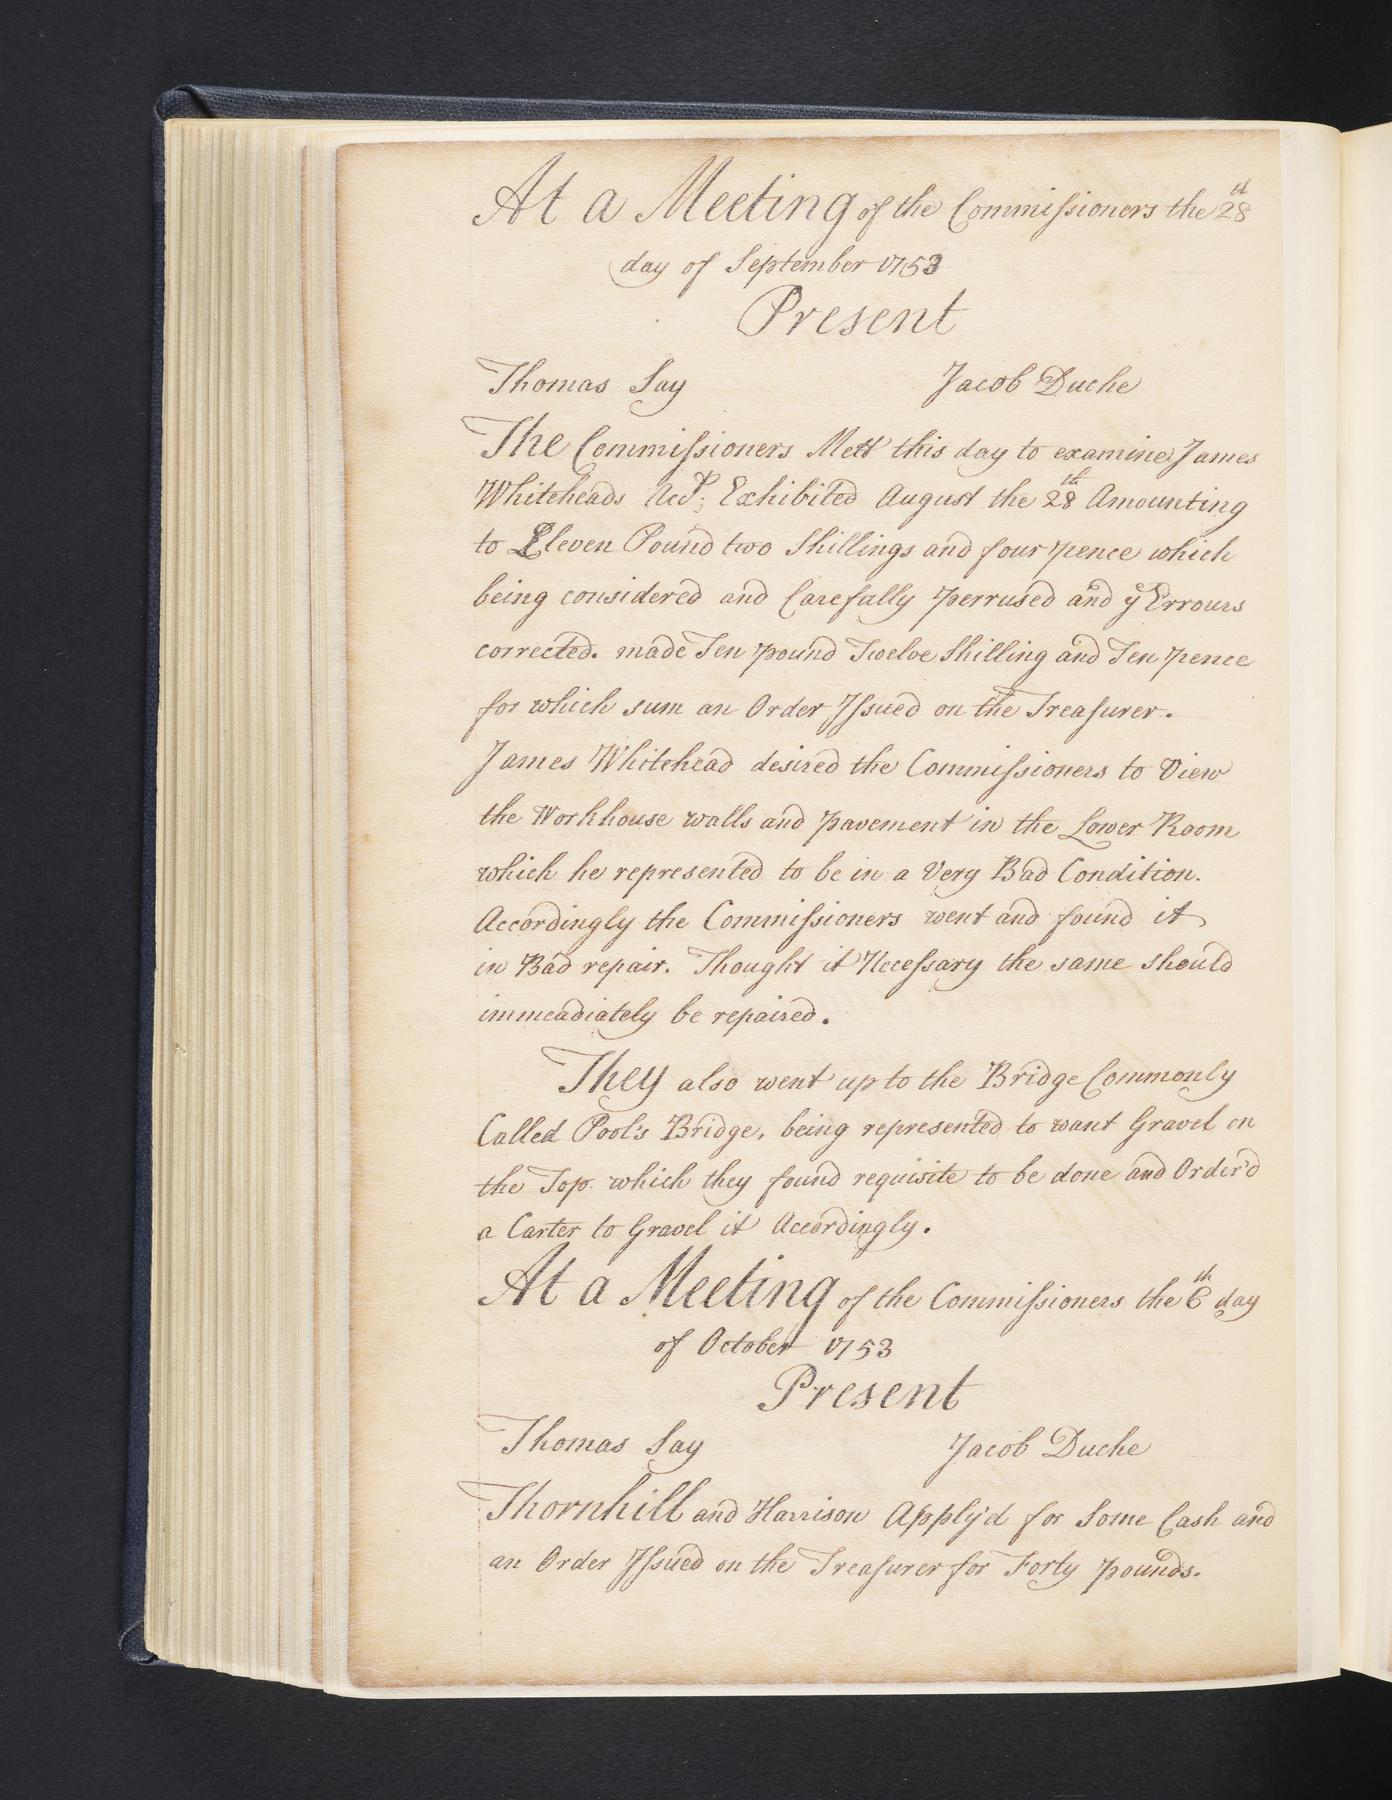 At a Meeting of the Commissioners the 28th
day of September 1753
Present
Thomas Say Jacob Duche
The Commissioners Mett this day to examine James
Whiteheads Acct: Exhibited August the 28th Amounting
to Eleven Pound two Shillings and four pence which
being considered and Carefully perrused and ye Errours
corrected. made Ten pound Twelve Shilling and Ten pence
for which sum an Order Issued on the Treasurer.
James Whitehead desired the Commissioners to View
the Workhouse walls and pavement in the Lower Room
which he represented to be in a Very Bad Condition.
Accordingly the Commissioners went and found it
in Bad repair. Thought it Necessary the same should
immeadiately be repaired.
They also went up to the Bridge Commonly
Called Pool's Bridge, being represented to want Gravel on
the Top which they found requisite to be done and Order'd
a Carter to Gravel it Accordingly.
At a Meeting of the Commissioners the 6th day
of October 1753
Present
Thomas Say Jacob Duche
Thornhill and Harrison Apply'd for Some Cash and
an Order Issued on the Treasurer for Forty pounds.